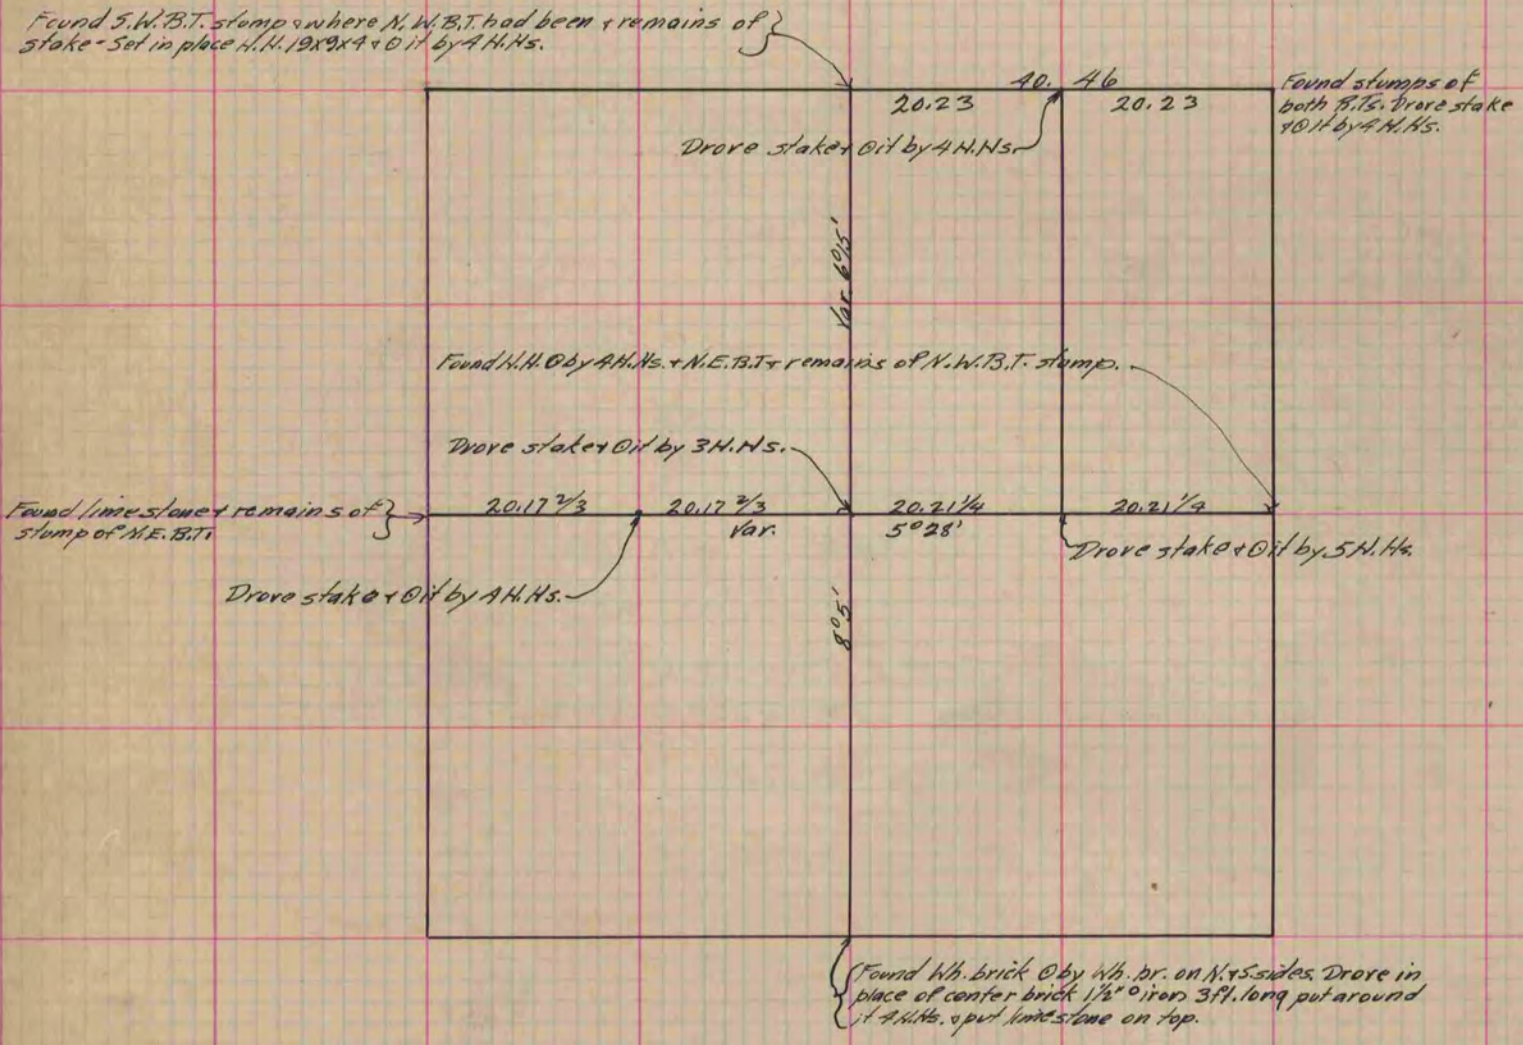 Found S.W.B.T. stump & where N.W.B.T. had been & remains of
stake - Set in place H.H. 19x9x4 & ⊙ it by 4 H.Hs.
40. 46
20.23
20.23
Found stumps of
both B.Ts. Drove stake
& ⊙ it by 4 H.Hs.
Drove stake & ⊙ it by 4 H.Hs.
Var. 6°15'
Found H.H. ⊙ by 4 H.Hs. & N.E.B.T. & remains of N.W.B.T. stump.
Drove stake & ⊙ it by 3 H.Hs.
Found limestone & remains of
stump of N.E.B.T.
20.17 2/3
20.17 2/3
20.21 1/4
20.21 1/4
Var.
5°28'
Drove stake & ⊙ it by 5 H.Hs.
Drove stake & ⊙ it by 4 H.Hs.
8°5'
Found Wh. brick ⊙ by Wh. br. on N. & S. sides. Drove in
place of center brick 1½" ° iron 3 ft. long put around
it 4 H.Hs. & put limestone on top.